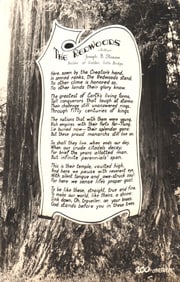 The REDWOODS
Joseph B. Strauss
Builder of Golden Gate Bridge
Here, sown by the Creator's hand,
In serried ranks, the Redwoods stand;
No other clime is honored so,
No other lands their glory know.
The greatest of Earth's living forms,
Tall conquerors that laugh at storms;
Their challenge still unanswered rings,
Through fifty centuries of kings.
The nations that with them were young,
Rich empires, with their forts far-flung,
Lie buried now—their splendor gone;
But these proud monarchs still live on.
So shall they live, when ends our day,
When our crude citadels decay;
For brief the years allotted man,
But infinite perennials' span.
This is their temple, vaulted high,
And here we pause with reverent eye,
With silent tongue and awe-struck soul;
For here we sense life's proper goal;
To be like these, straight, true and fine,
To make our world, like theirs, a shrine;
Sink down, Oh, traveler, on your knees,
God stands before you in these trees.